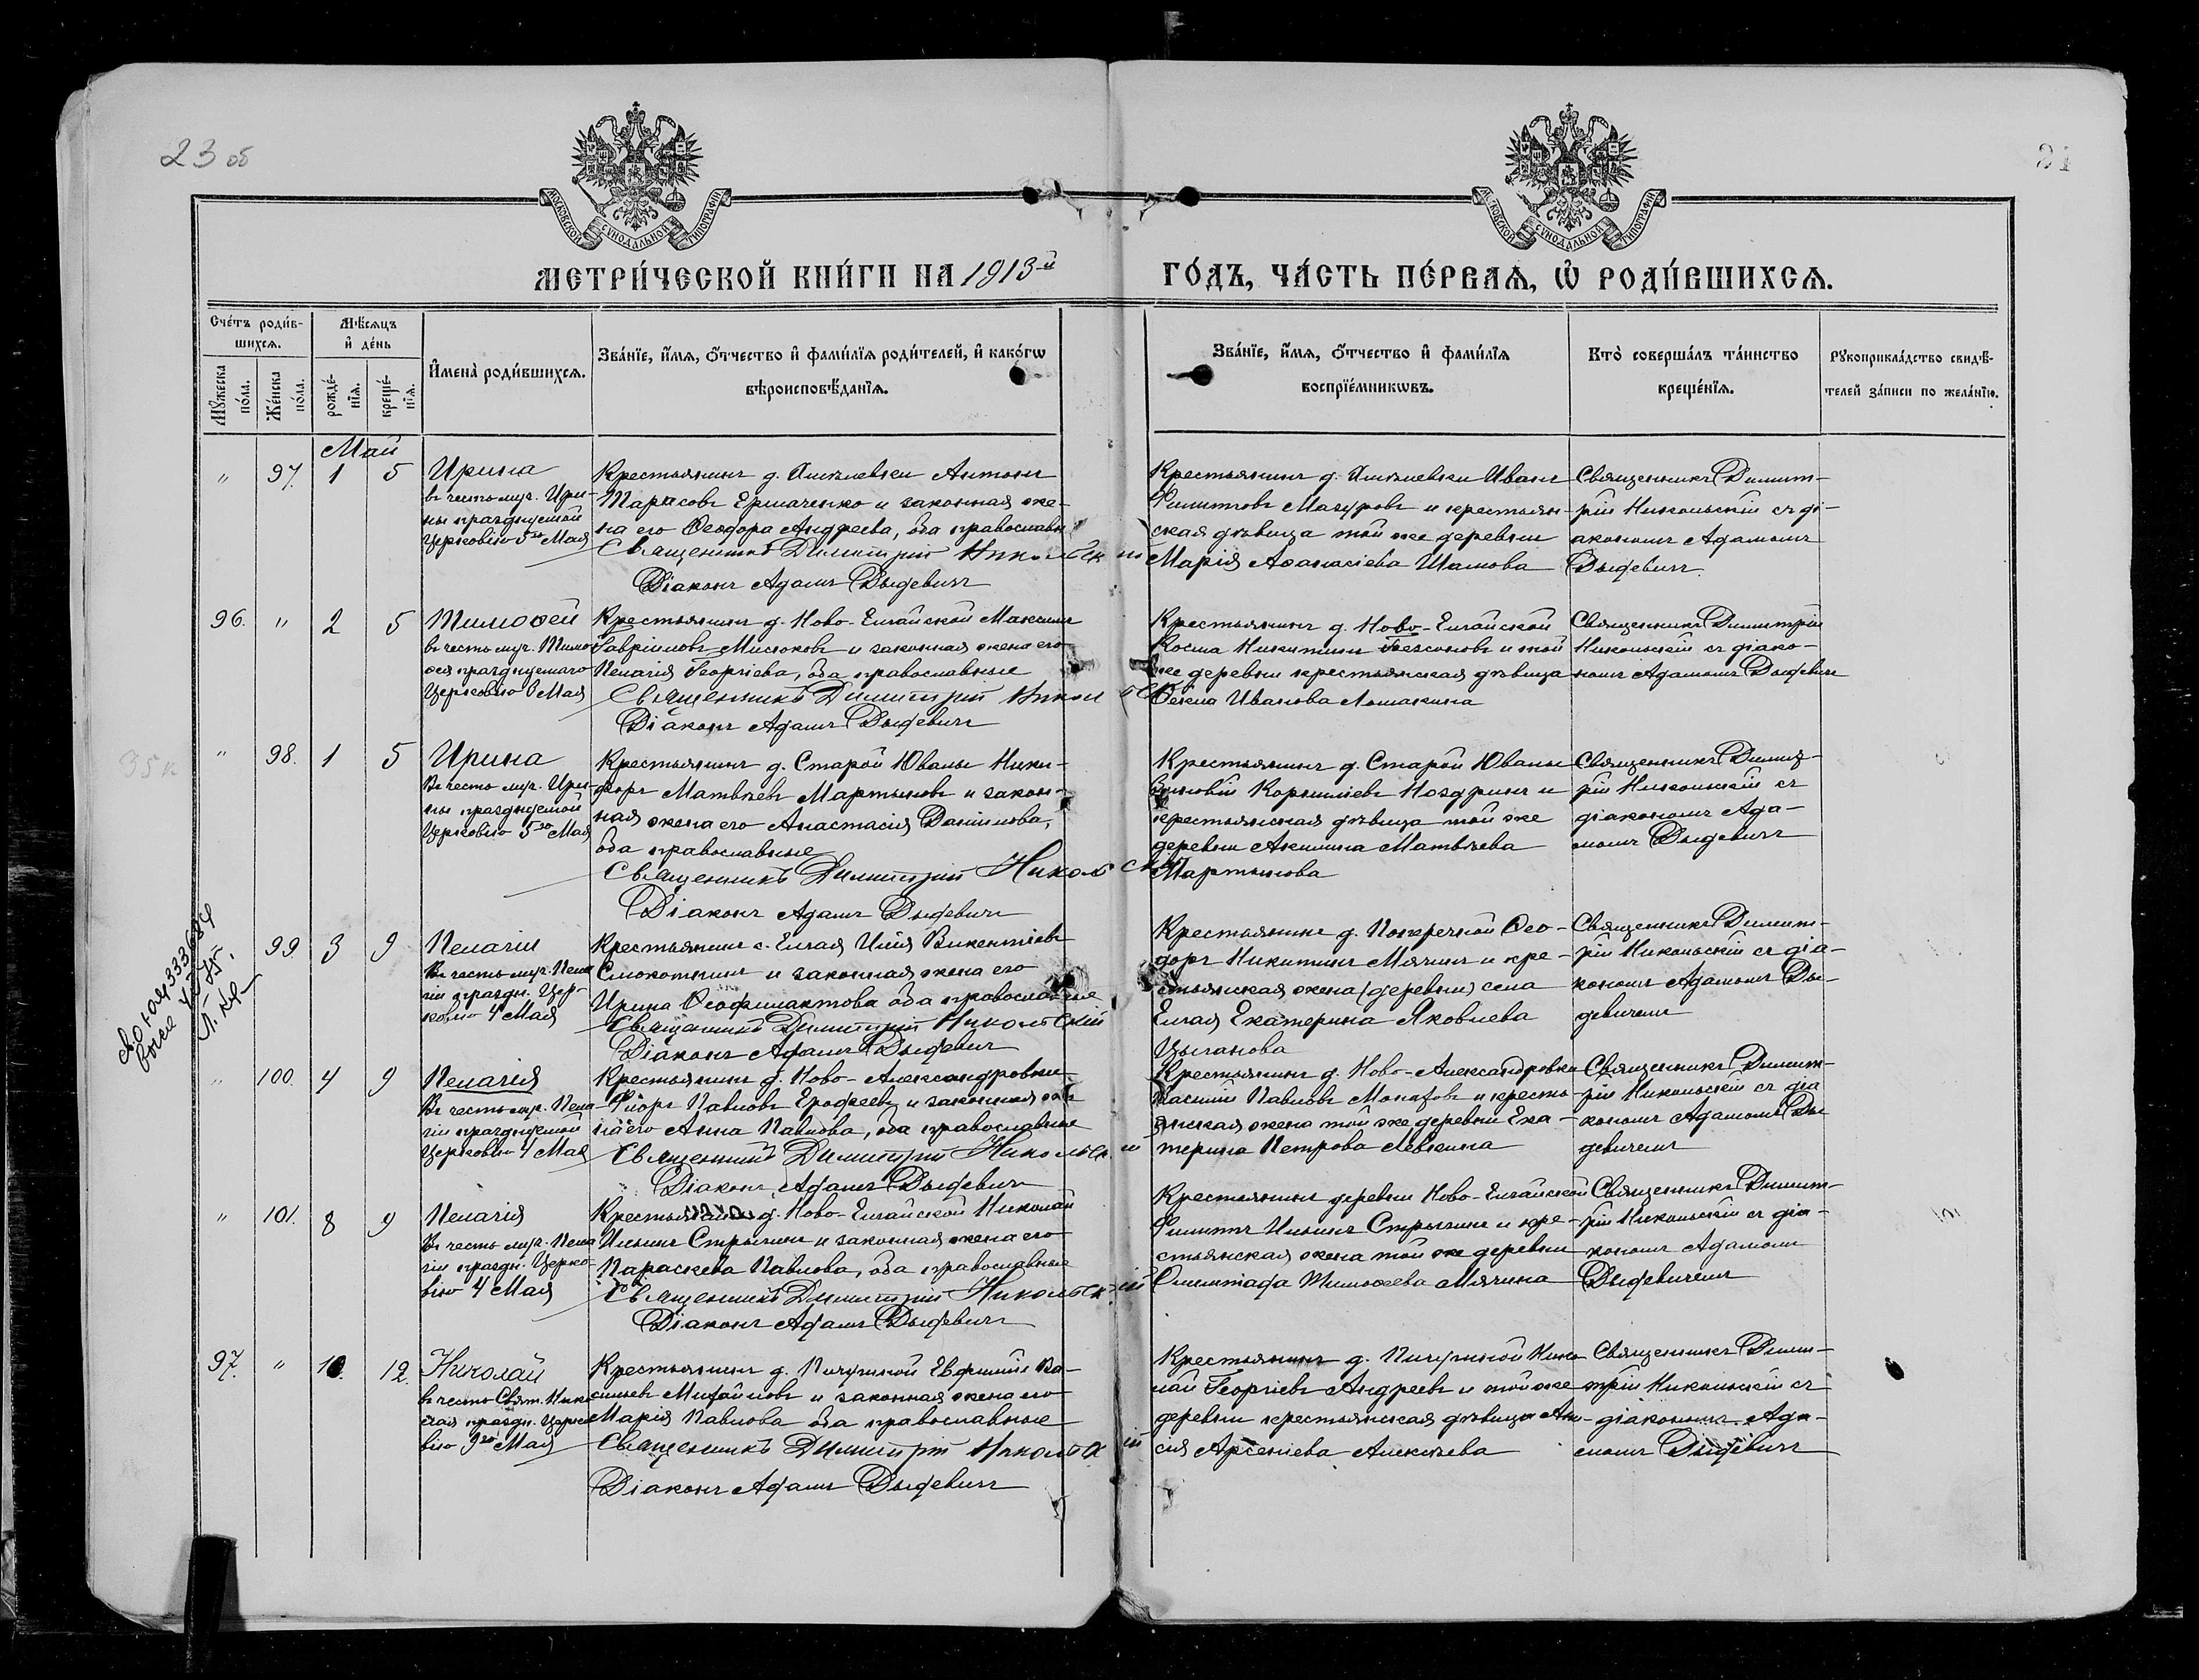 23 об
21
МОСКОВСКОЙ СѴНОДАЛЬНОЙ ТИПОГРАФІИ
МОСКОВСКОЙ СѴНОДАЛЬНОЙ ТИПОГРАФІИ
МЕТРИ́ЧЕСКОЙ КНИ́ГИ НА 1913-й ГО́ДЪ, ЧА́СТЬ ПЕ́РВАѦ, Ѡ҆ РОДИ́ВШИХСѦ.
Сче́тъ роди́в-
шихсѧ.
Мꙋ́жеска по́ла.
Же́нска по́ла.
Мѣ́сѧцъ
и҆ де́нь
рожде́-
нїѧ.
креще́-
нїѧ.
И҆мена̀ роди́вшихсѧ.
Зва́нїе, и҆́мѧ, о҆́тчество и҆ фами́лїѧ роди́телей, и҆ како́гѡ
вѣроисповѣ́данїѧ.
Зва́нїе, и҆́мѧ, о҆́тчество и҆ фами́лїѧ
воспрїе́мникѡвъ.
Кто̀ соверша́лъ та́инство
креще́нїѧ.
Рꙋкоприкла́дство свидѣ́-
телей за́писи по жела́нїю.
Май
" 97. 1 5 Ирина
въ честь муч. Ири-
ны празднуемой
Церковію 5го Мая
Крестьянинъ д. Антонъ
Тарасовъ Ермаченко и законная же-
на его Ѳеодора Андреева, оба православн
Священникъ Димитрій Никольскій
Діаконъ Адамъ Дыдевичъ
Крестьянинъ д. Иванъ
Филиповъ Мазуровъ и крестьян-
ская дѣвица той же деревни
Марія Аѳанасіева Шамова
Священникъ Димит-
рій Никольскій съ ді-
акономъ Адамомъ
Дыдевичъ.
96. " 2 5 Тимоѳей
въ честь муч. Тимо
ѳея празднуемаго
Церковію Мая
Крестьянинъ д. Ново-Елгайской Максимъ
Гавріиловъ Мисюковъ и законная жена его
Пелагія Георгіева, оба православные
Священникъ Димитрій Никольс
Діаконъ Адамъ Дыдевичъ
Крестьянинъ д. Ново-Елгайской
Косма Никитинъ Безсоновъ и той
же деревни крестьянская дѣвица
Ѳекла Иванова Лошакина
Священникъ Димитрій
Никольскій съ діако-
номъ Адамомъ Дыдевич
" 98. 1 5 Ирина
Въ честь муч. Ири-
ны празднуемой
Церковію 5го Мая
Крестьянинъ д. Старой Ювалы Ники-
форъ Матвѣевъ Мартыновъ и закон-
ная жена его Анастасія Даніилова,
оба православные
Священникъ Димитрій Никольскій
Діаконъ Адамъ Дыдевичъ
Крестьянинъ д. Старой Ювалы
Зиновій Корниліевъ Ноздринъ и
крестьянская дѣвица той же
деревни Акилина Матвѣева
Мартынова
Священникъ Димит-
рій Никольскій съ
діакономъ Ада-
момъ Дыдевичъ
99 3 9 Пелагія
Въ честь муч. Пела
гіи праздн. Цер-
ковію 4 Мая
Крестьянинъ с. Елгая Илія Викентіевъ
Слюкотнинъ и законная жена его
Ирина Ѳеофилактова оба православные
Священникъ Димитрій Никольскій
Діаконъ Адамъ Дыдевичъ
Крестьянинъ д. Поперечной Ѳео-
доръ Никитинъ Мячинъ и кре-
стьянская жена (деревни) села
Елгая Екатерина Яковлева
Цыганова
Священникъ Димит-
рій Никольскій съ діа-
кономъ Адамомъ Ды-
девичемъ
" 100. 4 9 Пелагія
Въ честь муч. Пела-
гіи празднуемой
Церковію 4 Мая
Крестьянинъ д. Ново-Александровки
Павловъ Ерофеевъ и законная же
на его Анна Павлова, оба православные
Священникъ Димитрій Никольскій
Діаконъ Адамъ Дыдевичъ
Крестьянинъ д. Ново-Александровки
Василій Павловъ Монаховъ и кресть-
янская жена той же деревни Ека-
терина Петрова Левкина
Священникъ Димит-
рій Никольскій съ діа
кономъ Адамомъ Ды
девичемъ
" 101. 8 9 Пелагія
Въ честь муч. Пела
гіи праздн. Церко-
вію 4 Мая
Крестьянинъ д. Ново-Елгайской Николай
Ильинъ Стрыгинъ и законная жена его
Параскева Павлова, оба православные
Священникъ Димитрій Никольскій
Діаконъ Адамъ Дыдевичъ
Крестьянинъ деревни Ново-Елгайской
Филиппъ Ильинъ Стрыгинъ и кре-
стьянская жена той же деревни
Олимпіада Тимоѳеева Мячина
Священникъ Димит-
рій Никольскій съ діа-
кономъ Адамомъ
Дыдевичемъ
97. " 10. 12. Николай
въ честь Свят. Нико
лая праздн. Церко
вію 9го Мая
Крестьянинъ д. Пичугиной Евфимій Ва-
сильевъ Михайловъ и законная жена его
Марія Павлова оба православные
Священникъ Димитрій Никольскій
Діаконъ Адамъ Дыдевичъ
Крестьянинъ д. Пичугиной Нико
лай Георгіевъ Андреевъ и той же
деревни крестьянская дѣвица
Арсеніева Алексѣева
Священникъ Дими-
трій Никольскій съ
діакономъ Ада-
момъ Дыдевичъ